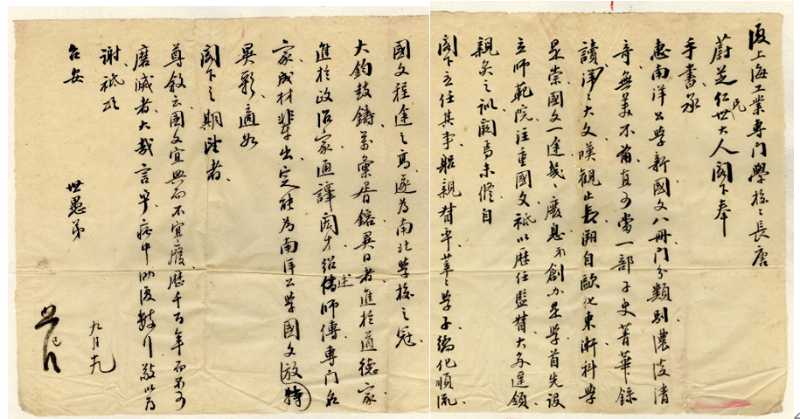 復上海工業專門學校〻長唐
蔚芝仁世大人閣下奉
手書承
惠南洋公學新國文八冊門分類別濃淡清
奇無美不備直可當一部子史菁華錄
讀洋〻大文嘆觀止矣溯自歐化東漸科學
是崇國文一途幾〻廢息創辦是學首先設
立師範院注重國文祗以歷任監督大多遥領
親炙之訓闕焉未修自
閣下立任其事躬親督率莘〻學子化順流
國文程途之高遂為南北學校之冠
大鈞鼓鑄萬彙胥鎔異日者進於道德家
進於政治家通譯閎才紹述師傳專門名
家成材輩出定能為南洋公學國文放特
異彩適如
閣下之期望者
尊敘云國文宜興而不宜廢歷千百年而不可
磨滅者大哉言乎病中泐復數行敬以為
謝祗頌
台安
世愚弟
九月九